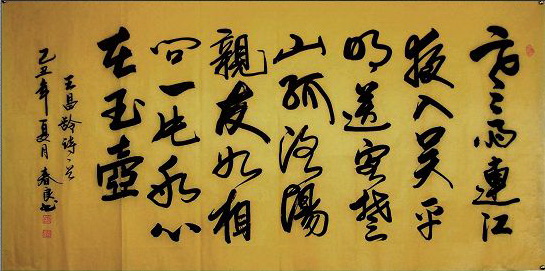 寒雨連江
夜入吴平
明送客楚
山孤洛陽
親友如相
问一片冰心
在玉壺
王昌齡诗一首
乙丑年夏月 春